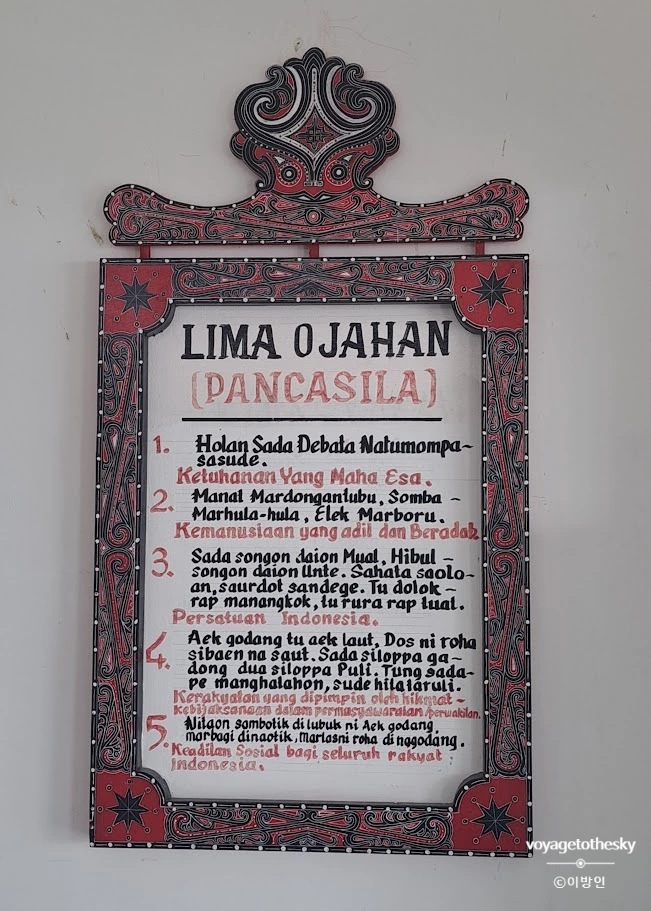 LIMA OJAHAN
(PANCASILA)
1. Holan Sada Debata Natumompa-
sasude.
Ketuhanan Yang Maha Esa.
2. Manat Mardongantubu, Somba -
Marhula-hula, Elek Marboru.
Kemanusiaan yang adil dan Beradab.
3. Sada songon daion Mual, Hibul -
songon daion Unte. Sahata saolo-
an, saurdot sandege. Tu dolok -
rap manangkok, tu rura rap tuat.
Persatuan Indonesia.
4. Aek godang tu aek laut, Dos ni roha
sibaen na saut. Sada siloppa ga-
dong dua siloppa Puli. Tung sada-
pe manghatahon, sude hita taruli.
Kerakyatan yang dipimpin oleh hikmat -
kebijaksanaan dalam permasyawaratan /perwakilan.
5. Nitaon sambotik di lubuk ni Aek godang
marbagi dinaotik, martasni roha dinagodang.
Keadilan Sosial bagi seluruh rakyat
Indonesia.
voyagetothesky
©이방인